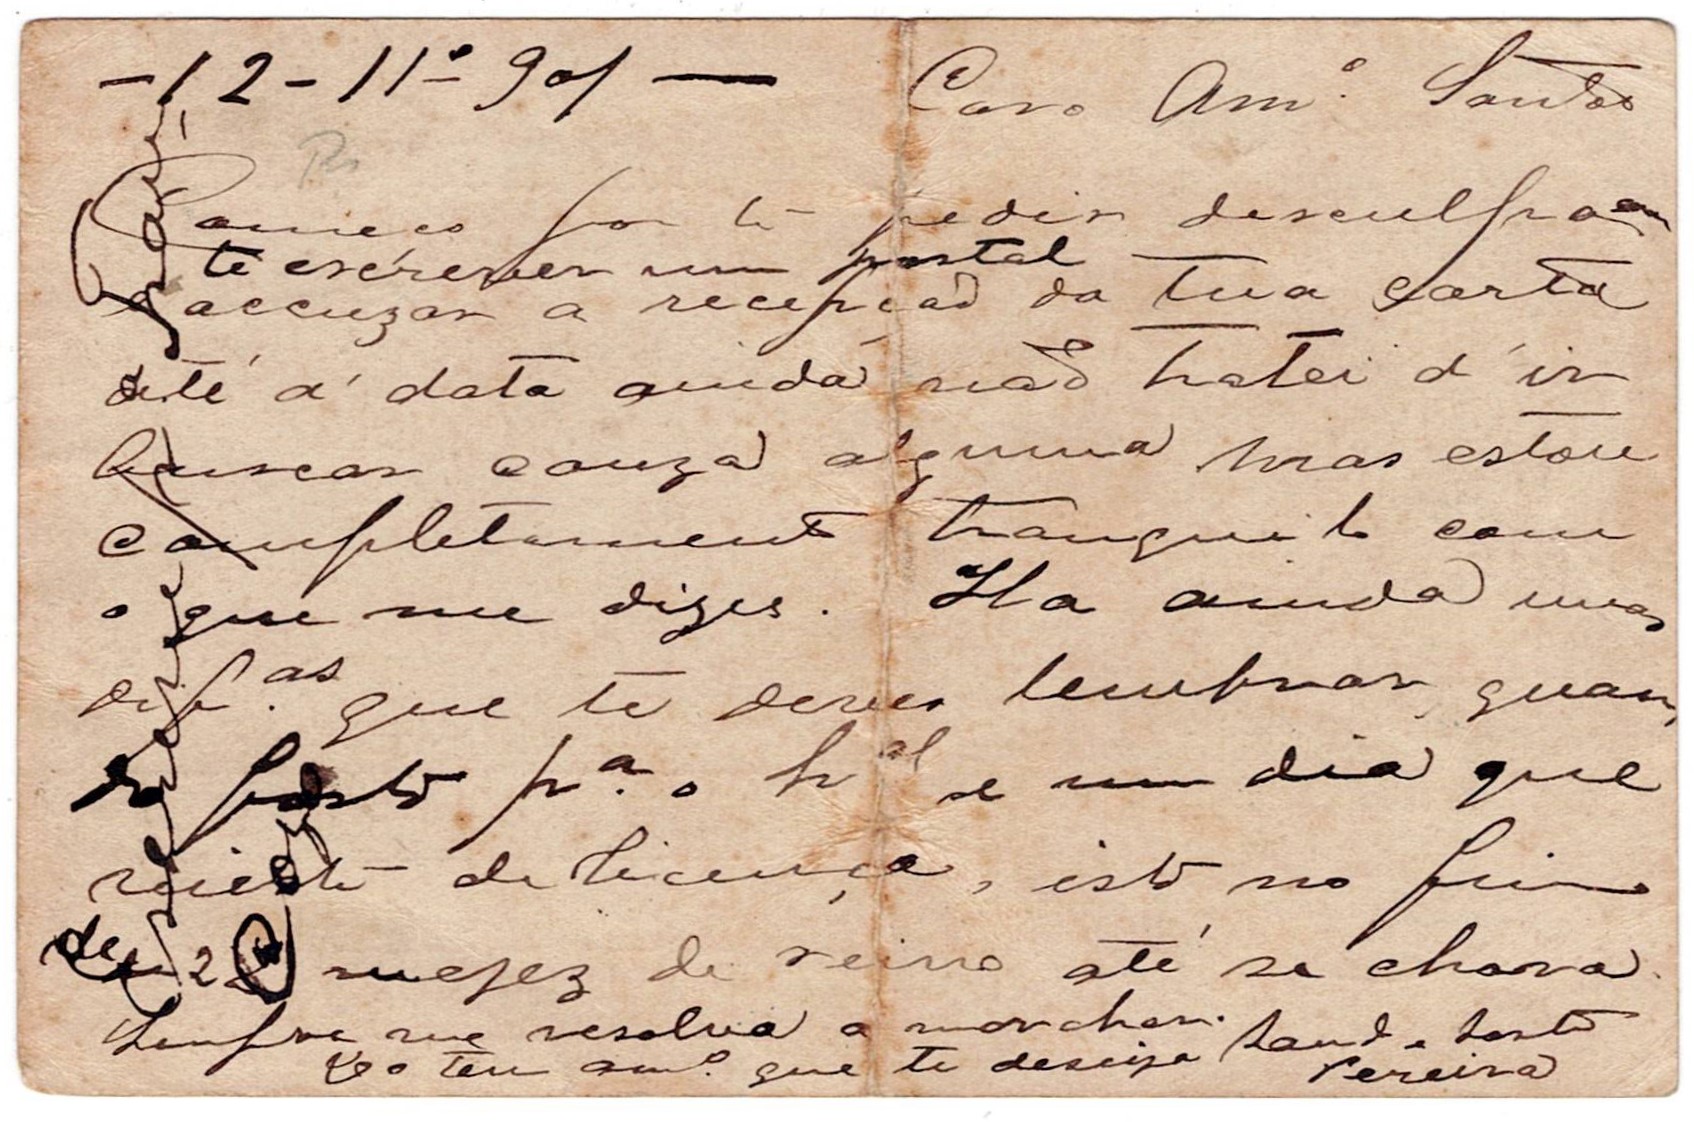 -12-11º-901-
Caro Amº Santos
Começo por te pedir desculpa em
te escrever um postal
e accuzar a recepção da tua carta
até á data ainda não tratei d'ir
buscar couza alguma mas estou
completamente tranquilo com
o que me dizes. Ha ainda umas
que te deves lembrar, quan
do pº o h al se um dia que
de licença, isto no fim
de 2 mezez de reino até se chora
Sempre me resolva a marchar. Saude
do teu amº que te deseija
Pereira